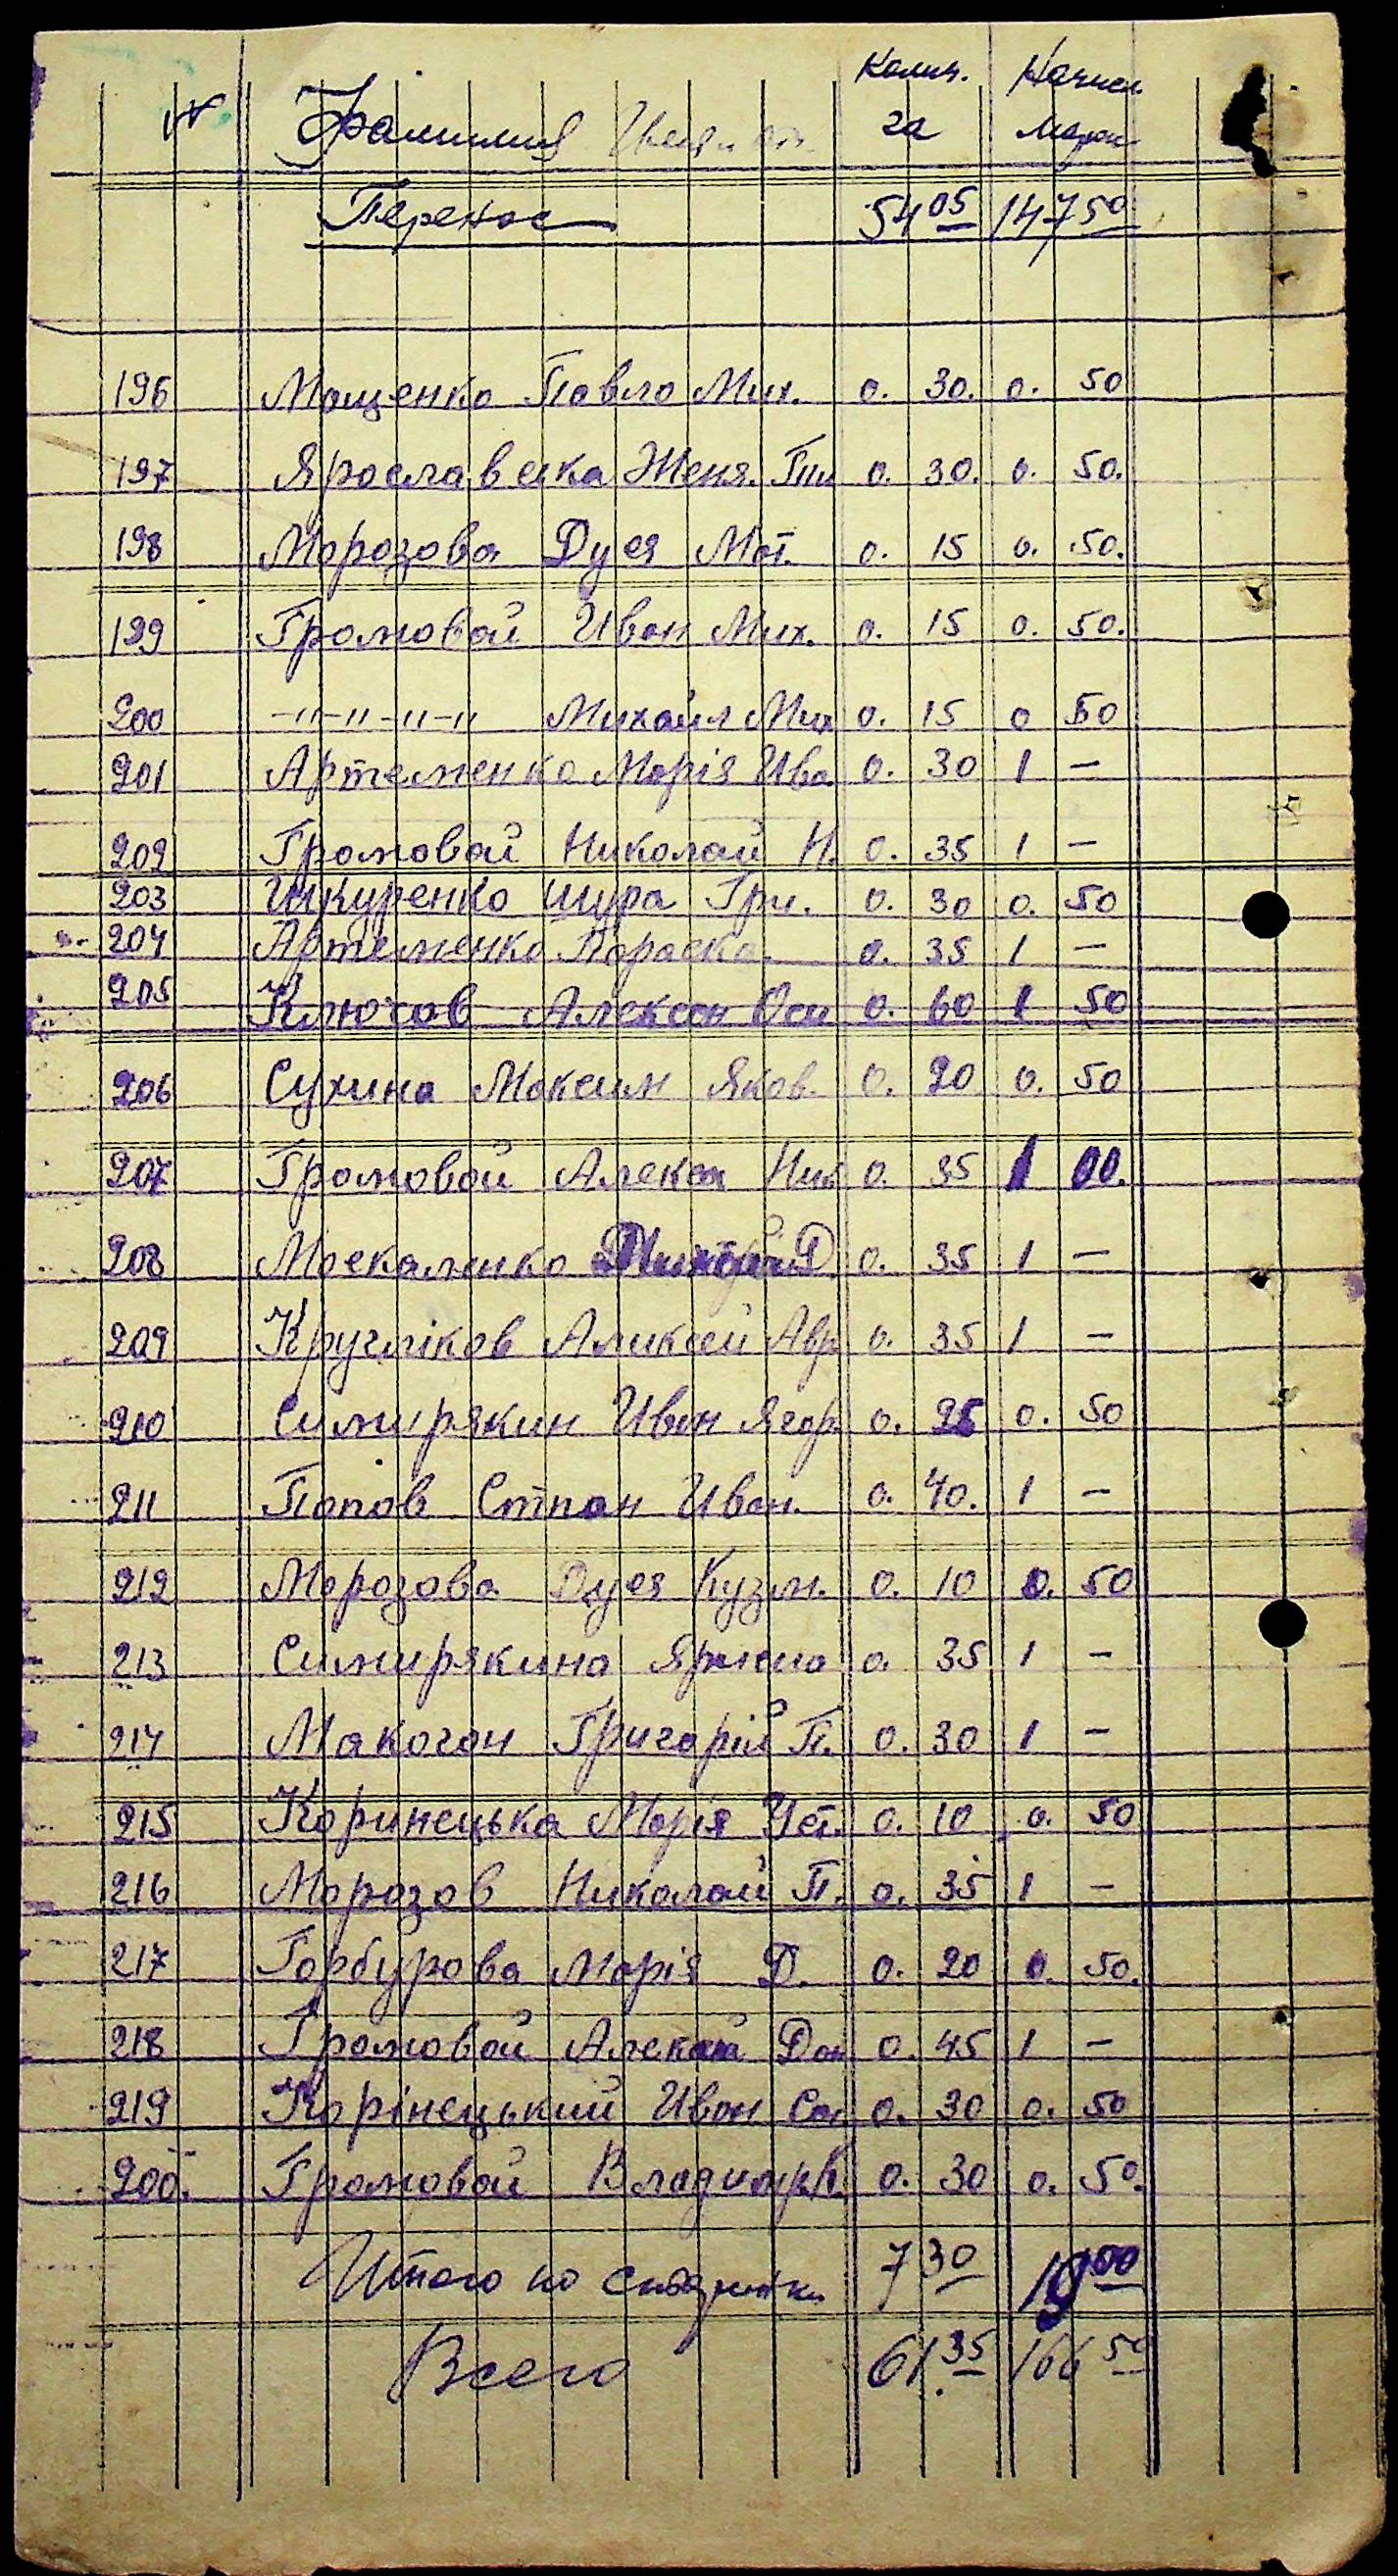 № Фамилия Имя и от. Колич. га Начисл. марок
Перенос 54 05 147 50
196 Мащенко Павло Мих. 0. 30. 0. 50
197 Ярославска Женя. 0. 30. 0. 50.
198 Морозова Дуся Мат. 0. 15 0. 50.
199 Громовай Иван Мих. 0. 15 0. 50.
200 -"-"-"-" Михайл Мих 0. 15 0 50
201 Артеменко Марія Ива. 0. 30 1 —
202 Громовай Николай Н. 0. 35 1 —
203 Шкуренко Шура Гри. 0. 30 0. 50
204 Артеменко Параска. 0. 35 1 —
205 Ключов Алексан Оси 0. 60 1 50
206 Сухина Максим Яков. 0. 20 0. 50
207 Громовай Алекса Ник 0. 35 1 00.
208 Москаленко Дмитрій Д. 0. 35 1 —
209 Кругліков Аликсей Авр. 0. 35 1 —
210 Симирякин Иван Ягор. 0. 25 0. 50
211 Попов Стпан Иван. 0. 40. 1 —
212 Морозова Дуся Кузм. 0. 10 0. 50
213 Симирякина 0. 35 1 —
214 Макогон Григорій П. 0. 30 1 —
215 Коринецька Марія 0. 10 0. 50
216 Морозов Николай П. 0. 35 1 —
217 Горбурова Марія Д. 0. 20 0. 50.
218 Громовай Дан 0. 45 1 —
219 Корінецький Иван Сав 0. 30 0. 50
200. Громовай Владимр 0. 30 0. 50.
Итого по 7 30 19 00
Всего 61. 35 166 50